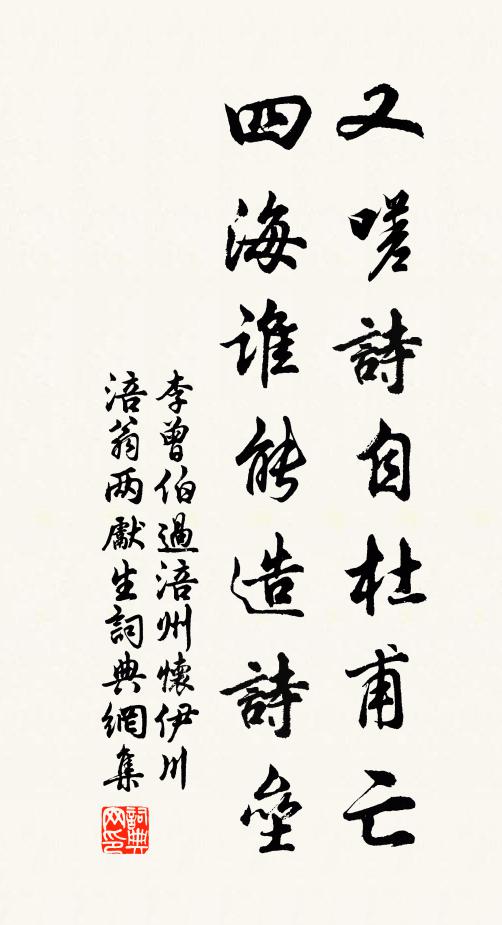 又嗟詩自杜甫亡
四海誰能造詩壘
李曾伯過涪州懷伊川
涪翁两獻生詞典網集
詞典
网印